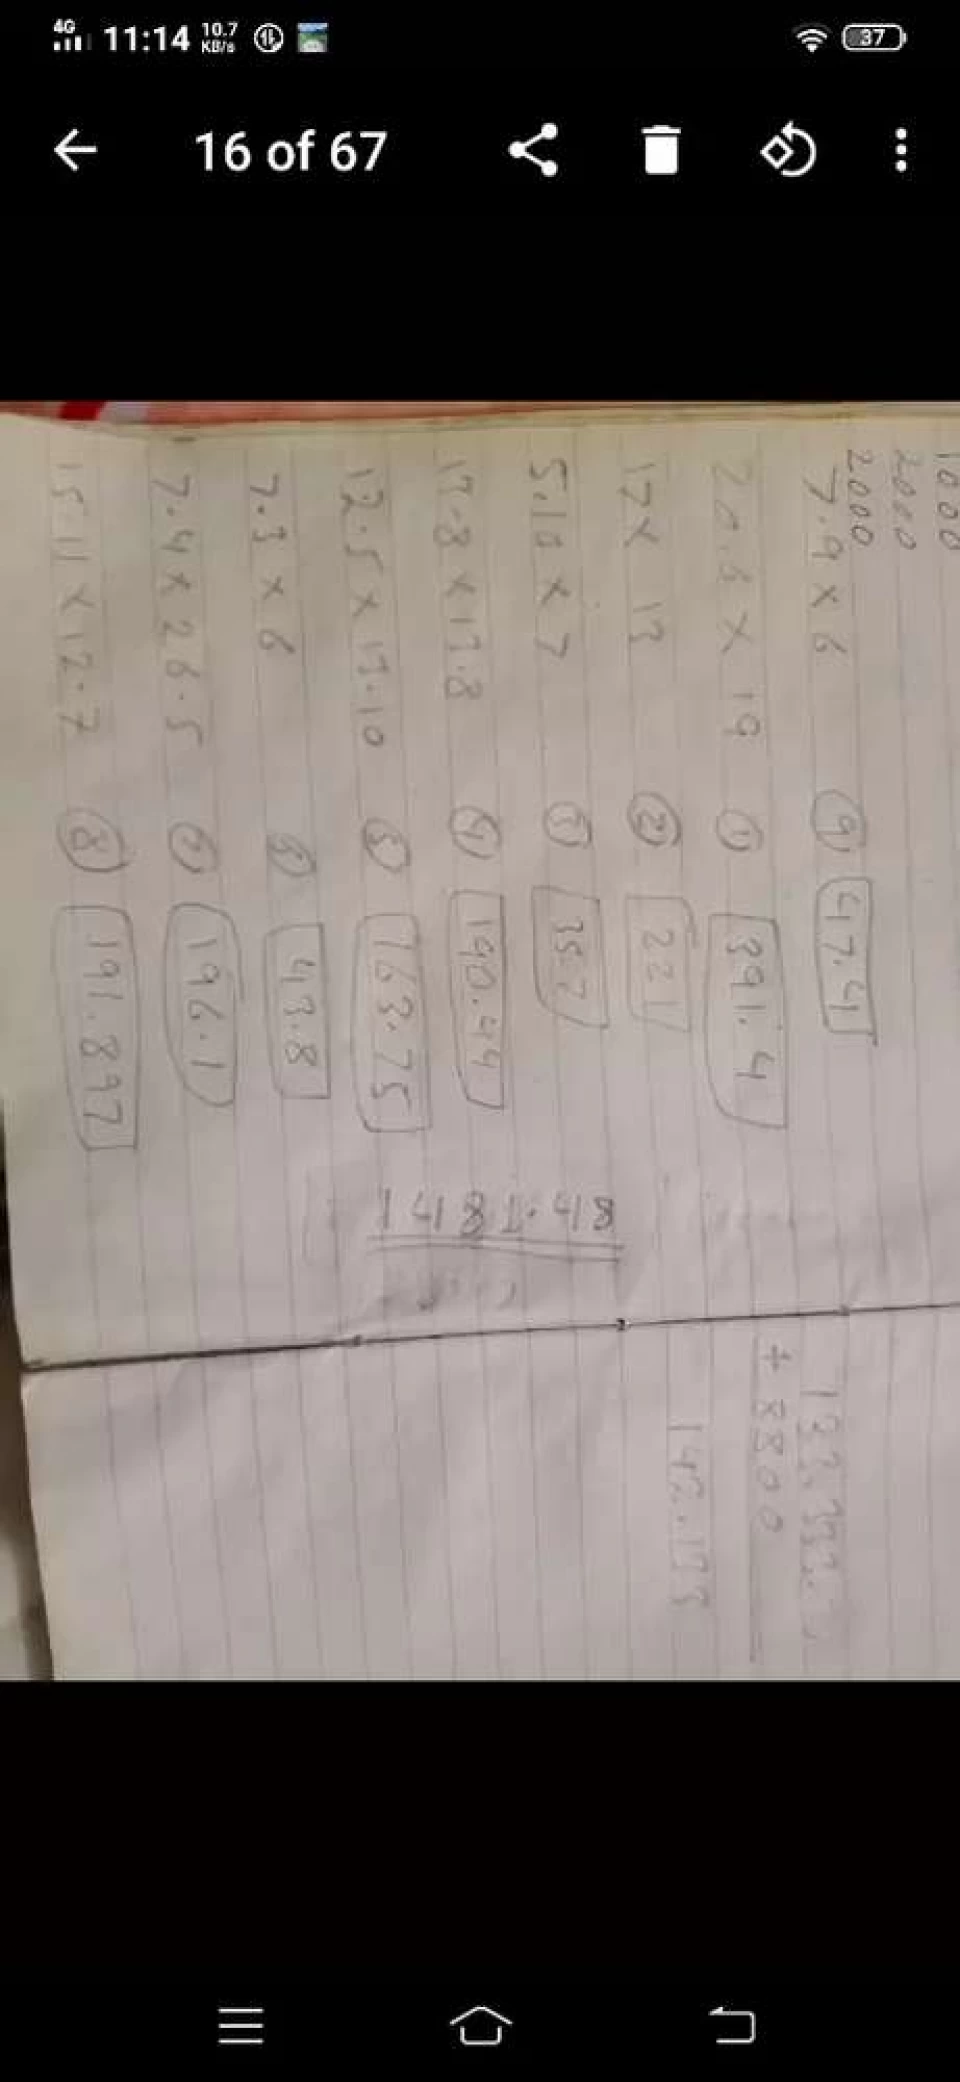 4G 11:14 10.7 KB/s 37
16 of 67
1000
2000
2000
7.9 x 6 9 47.4
20.6 x 19 1 391.4
17 x 13 2 221
5.10 x 7 3 35.7
4 190.44
5 163.75
7.3 x 6 6 43.8
7.4 x 26.5 7 196.1
15.11 x 12.7 8 191.897
1481.48
+ 8800